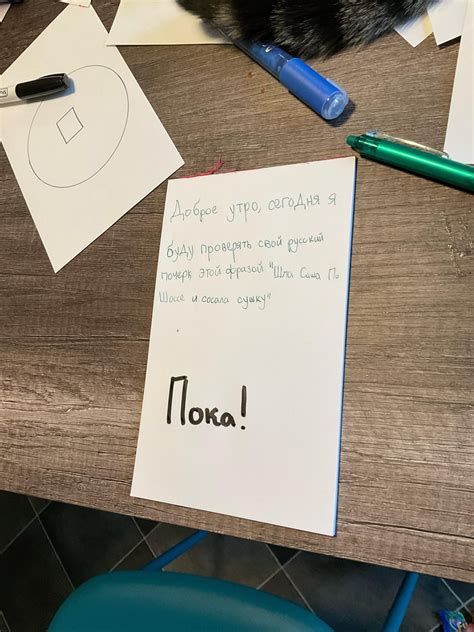 Доброе утро, сегодня я
буду проверять свой русский
почерк этой фразой "Шла Саша По
Шоссе и сосала сушку"
Пока!